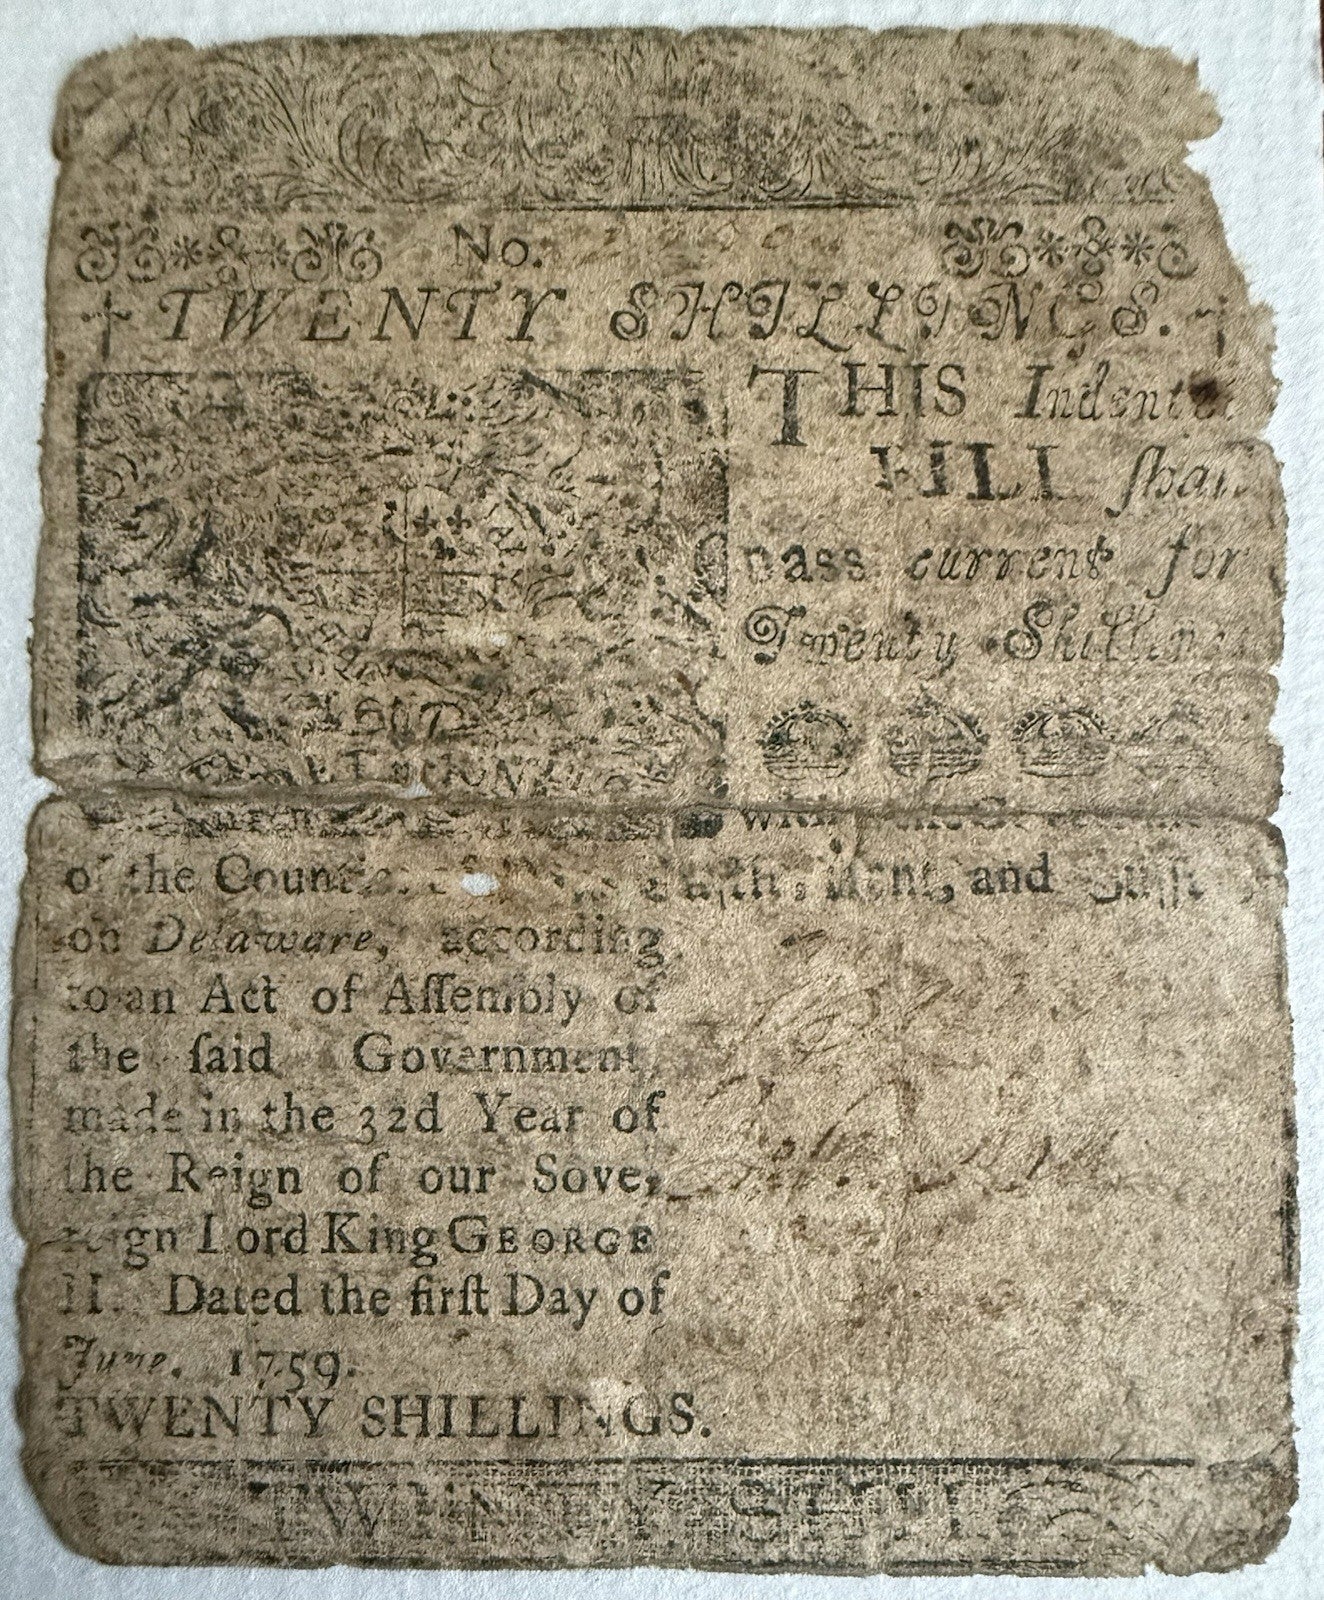 No.
TWENTY SHILLINGS.
THIS Indented
BILL ſhall
paſs current for
Twenty Shillings
within the Government
of the Counties of Kent, and Suſſex
on Delaware, according
to an Act of Aſſembly of
the ſaid Government
made in the 32d Year of
the Reign of our Sove-
reign Lord King GEORGE
II. Dated the firſt Day of
June. 1759.
TWENTY SHILLINGS.
TWENTY SHIL